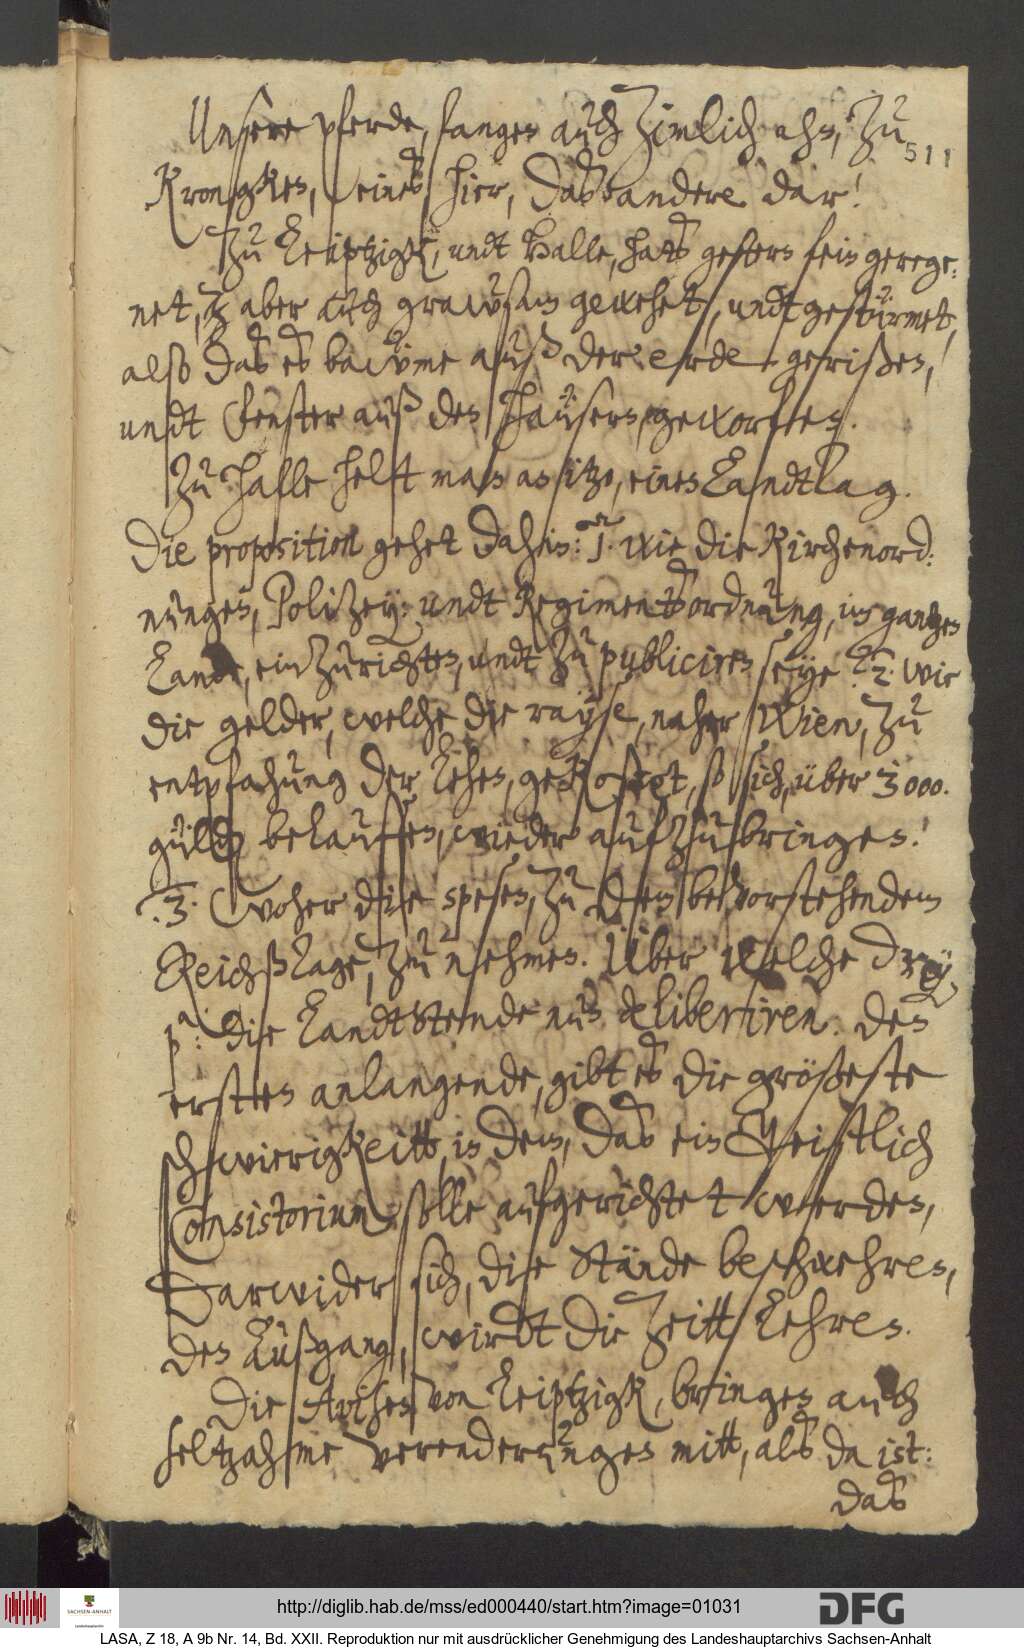 Unsere pferde, fangen auch Zimlich ahn, Zu
511
Krangken, eines hier, daß andere dar!
Zu Leiptzigk, undt Halle, hats gestern fein gerege:
net, aber auch grawsam gewehet, undt gestürmet,
also daß es bawme auß der erden gerißen,
undt fenster auß den Haüsern geworfen.
Zu Halle helt man an itzo, einen Landtag.
Die proposition gehet dahin: 1. wie die Kirchenord:
nungen, Polizey: undt Regimentsordnung, ins gantzen
Lande, einzurichten, undt zu publiciren seye? 2. wie
die gelder, welche die rayse, naher Wien, zu
entpfahung der Lehen, gekostet, so sich, über 3000.
güld belauffen, wieder aufzubringen!
3. woher die spesen, zu dem bevorstehendem
Reichßtage, zu nehmen. Über welche drey
p die Landtstende nun deliberiren. Den
ersten anlangende, gibt es die größeste
schwierigkeitt, in dem, daß ein Geistlich
Consistorium solle aufgerichtet werden,
Darwider sich, die Stände beschwehren,
den Außgang, wirdt die Zeitt Lehren.
Die Avisen von Leiptzigk, bringen auch
seltzahme verenderungen mitt, als da ist:
das
http://diglib.hab.de/mss/ed000440/start.htm?image=01031
SACHSEN-ANHALT
DFG
LASA, Z 18, A 9b Nr. 14, Bd. XXII. Reproduktion nur mit ausdrücklicher Genehmigung des Landeshauptarchivs Sachsen-Anhalt